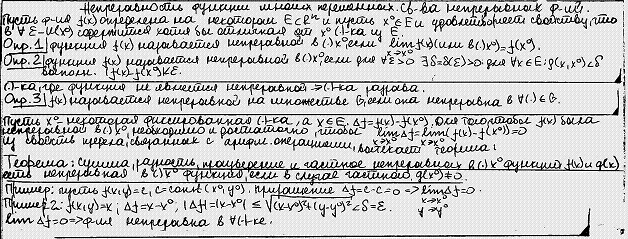 Непрерывность функции многих переменных. Св-ва непрерывных ф-ий.
Пусть ф-ия f(x) определена на некотором E⊂Rⁿ и пусть x⁰∈E и удовлетворяет свойству, что
в ∀ ε-U(x⁰) содержится хотя бы отличная от x⁰ (·)-ка из E.
Опр.1 функция f(x) называется непрерывной в (·) x⁰, если lim f(x) (или в (·) x⁰) = f(x⁰).
x→x⁰
Опр.2 функция f(x) называется непрерывной в (·) x⁰, если для ∀ε>0 ∃δ=δ(ε)>0: для ∀x∈E: ρ(x,x⁰)<δ
выполн. |f(x)-f(x⁰)|<ε.
(·)-ка, где функция не является непрерывной → (·)-ка разрыва.
Опр.3 f(x) называется непрерывной на множестве G, если она непрерывна в ∀(·)∈G.
Пусть x⁰ некоторая фиксированная (·)-ка, а x∈E, Δf=f(x)-f(x⁰). Для того чтобы f(x) была
непрерывной в (·) x⁰, необходимо и достаточно, чтобы lim Δf = lim (f(x)-f(x⁰))=0
x→x⁰ x→x⁰
из свойств предела, связанных с арифм. операциями, вытекает теорема:
Теорема: сумма, разность, произведение и частное непрерывных в (·) x⁰ функций f(x) и g(x)
есть непрерывная в (·) x⁰ функция, если в случае частного, g(x⁰)≠0.
Пример: пусть f(x,y)=c, c=const (x⁰,y⁰). приращение Δf=c-c=0 => lim Δf=0.
x→x⁰
y→y⁰
Пример 2: f(x,y)=x; Δf=x-x⁰, |Δf|=|x-x⁰| ≤ √(x-x⁰)²+(y-y⁰)² < δ=ε.
lim Δf=0 => ф-ия непрерывна в ∀(·)-ке.